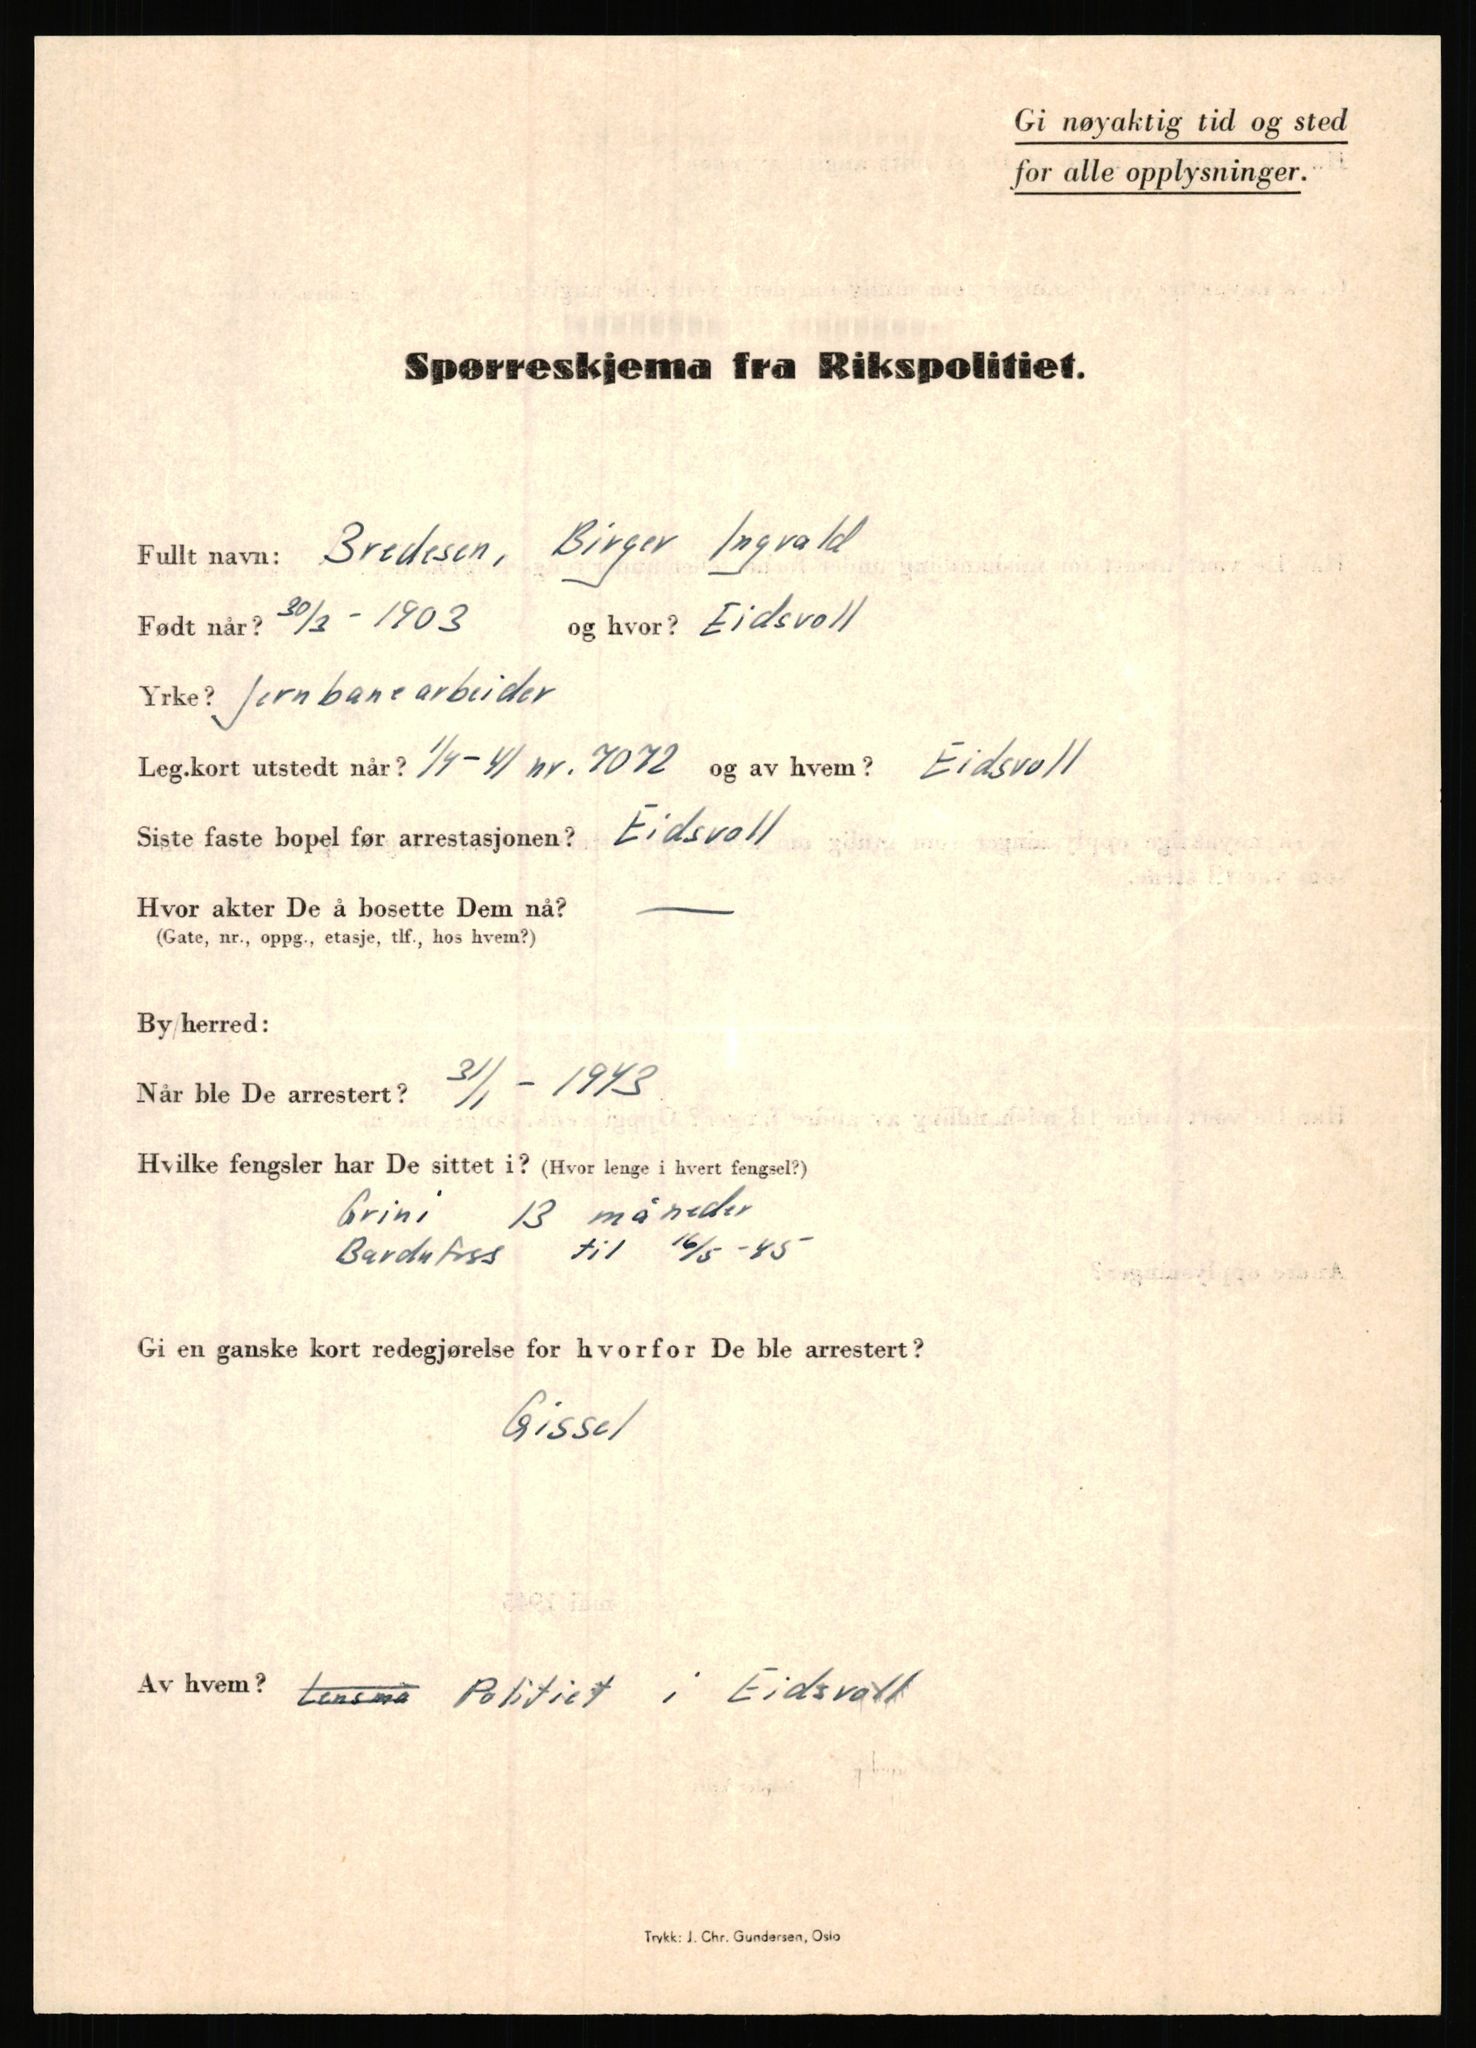 Gi nøyaktig tid og sted
for alle opplysninger.
Spørreskjema fra Rikspolitiet.
Fullt navn: Bredesen, Birger Ingvald
Født når? 30/3 - 1903 og hvor? Eidsvoll
Yrke? Jernbanearbeider
Leg.kort utstedt når? 1/4-41 nr. 7072 og av hvem? Eidsvoll
Siste faste bopel før arrestasjonen? Eidsvoll
Hvor akter De å bosette Dem nå? —
(Gate, nr., oppg., etasje, tlf., hos hvem?)
By/herred:
Når ble De arrestert? 31/1 - 1943
Hvilke fengsler har De sittet i? (Hvor lenge i hvert fengsel?)
Grini 13 måneder
Bardufoss til 16/5 -45
Gi en ganske kort redegjørelse for hvorfor De ble arrestert?
Gissel
Av hvem? Lensma Politiet i Eidsvoll
Trykk: J. Chr. Gundersen, Oslo